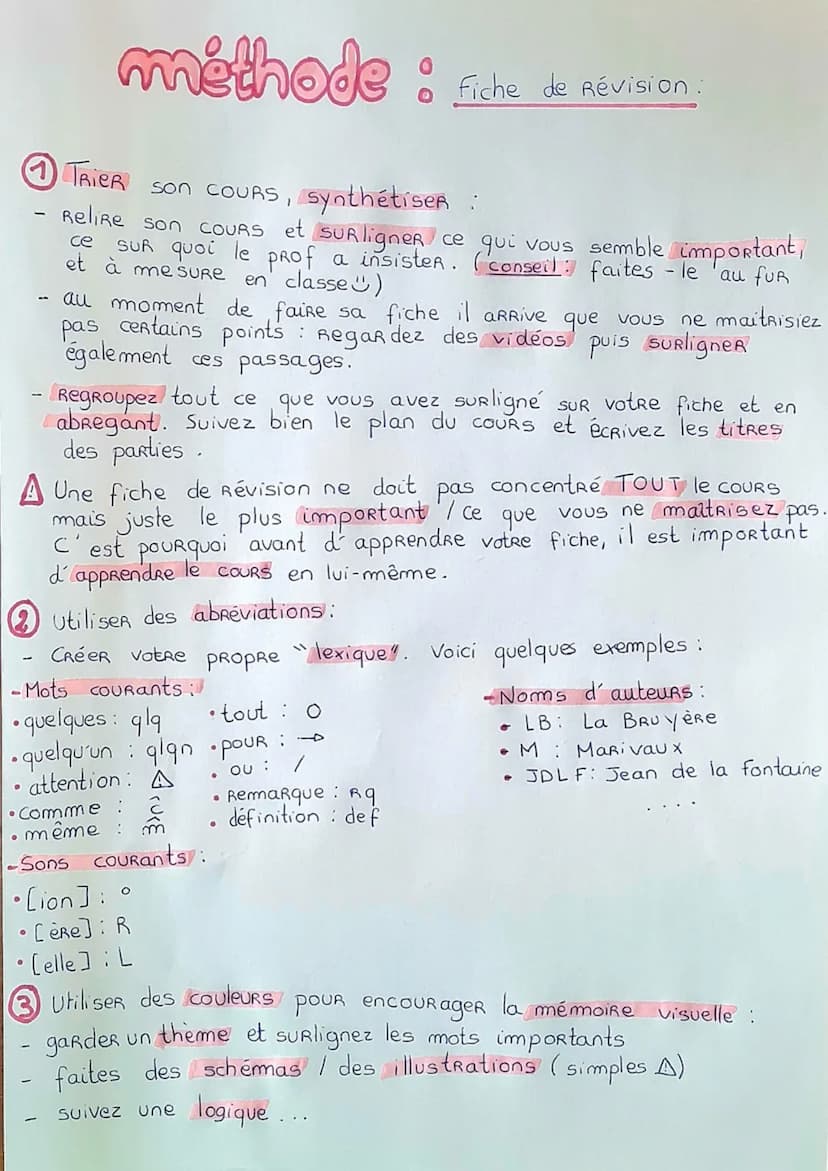 méthode : Fiche de Révision :
① Trier son cours, synthétiser :
- Relire son cours et surligner ce qui vous semble important,
ce sur quoi le prof a insister. (conseil : faites-le au fur
et à mesure en classe ☺)
- au moment de faire sa fiche il arrive que vous ne maitrisiez
pas certains points : regardez des vidéos puis surligner
également ces passages.
- Regroupez tout ce que vous avez surligné sur votre fiche et en
abregant. Suivez bien le plan du cours et écrivez les titres
des parties.
⚠ Une fiche de révision ne doit pas concentré TOUT le cours
mais juste le plus important / ce que vous ne maîtrisez pas.
C'est pourquoi avant d'apprendre votre fiche, il est important
d'apprendre le cours en lui-même.
② Utiliser des abréviations :
- Créer votre propre "lexique". Voici quelques exemples :
- Mots courants :
• quelques : qlq
• quelqu'un : qlqn
• attention : ⚠
• comme : ĉ
• même : m̂
• tout : O
• pour : →
• ou : /
• Remarque : Rq
• définition : def
- Noms d'auteurs :
• LB : La Bruyère
• M : Marivaux
• JDLF : Jean de la Fontaine
....
- Sons courants :
• [ion] : °
• [ère] : R
• [elle] : L
③ Utiliser des couleurs pour encourager la mémoire visuelle :
- garder un thème et surlignez les mots importants
- faites des schémas / des illustrations (simples ⚠)
- suivez une logique ...